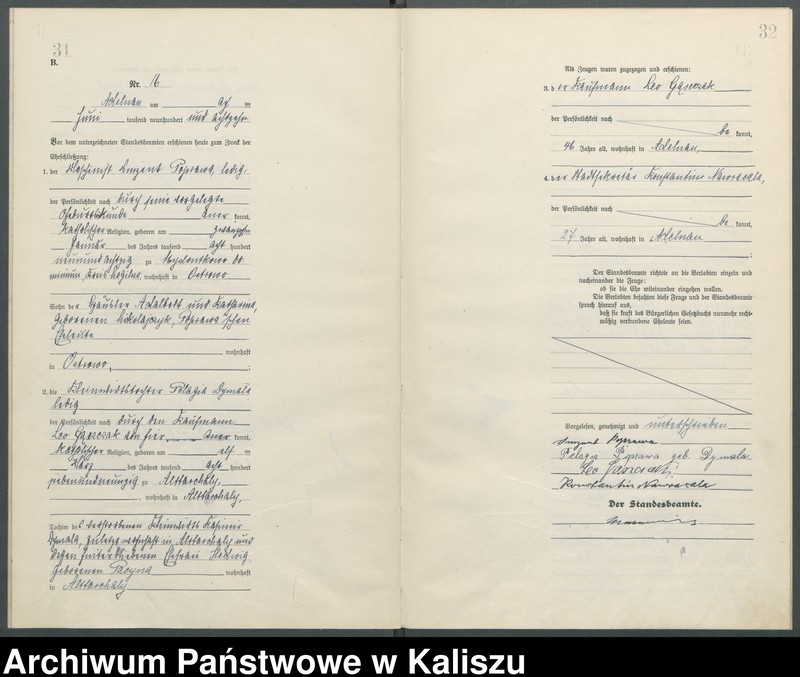 31
B.
Nr. 16
Adelnau am acht im
Juni tausend neunhundert und achtzehn
Vor dem unterzeichneten Standesbeamten erschienen heute zum Zweck der
Eheschließung:
1. der Maschinist Vinzent Poprawa, ledig,
der Persönlichkeit nach durch seine vorgelegte
Geburtsurkunde aner kannt,
katholischer Religion, geboren am
Januar des Jahres tausend acht hundert
neunundachtzig zu Do
minium, Kreis wohnhaft in Ostrowo
Sohn des Häusler Adalbert und Katharina,
geborenen Mikolajczyk, Poprawa'schen
Eheleute
wohnhaft
in Ostrowo,
2. die Kleinwirtstochter Pelagia Dymala
ledig
der Persönlichkeit nach durch den Kaufmann
Leo Gąszczak von hier, aner kannt,
katholischer Religion, geboren am elf im
März des Jahres tausend acht hundert
siebenundneunzig zu Alttarchaly,
, wohnhaft in Alttarchaly,
Tochter des verstorbenen Kleinwirts Kasimir
Dymala, zuletzt wohnhaft in Alttarchaly und
dessen hinterbliebenen Ehefrau Hedwig
geborenen Pacyna wohnhaft
in Alttarchaly
32
Als Zeugen waren zugezogen und erschienen:
3. der Kaufmann Leo Gąszczak
der Persönlichkeit nach
be kannt,
46 Jahre alt, wohnhaft in Adelnau,
4. der Stadtsekretär Konstantin Nawrocala,
der Persönlichkeit nach
be kannt,
27 Jahre alt, wohnhaft in Adelnau
;
Der Standesbeamte richtete an die Verlobten einzeln und
nacheinander die Frage:
ob sie die Ehe miteinander eingehen wollen.
Die Verlobten bejahten diese Frage und der Standesbeamte
sprach hierauf aus,
daß sie kraft des Bürgerlichen Gesetzbuchs nunmehr recht-
mäßig verbundene Eheleute seien.
Vorgelesen, genehmigt und unterschrieben
Vinzent Poprawa
Pelagia Poprawa geb. Dymala
Leo Gąszczak
Konstantin Nawrocala
Der Standesbeamte.
Archiwum Państwowe w Kaliszu